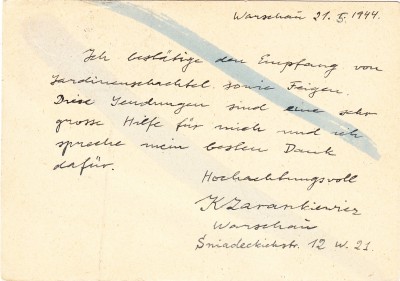 Warschau 21. 5. 1944.
Ich bestätige den Empfang von
Sardinenschachtel, sowie Feigen.
Diese Sendungen sind eine sehr
grosse Hilfe für mich und ich
spreche mein besten Dank
dafür.
Hochachtungsvoll
KZarankiewicz
Warschau
Śniadeckichstr. 12 W. 21.